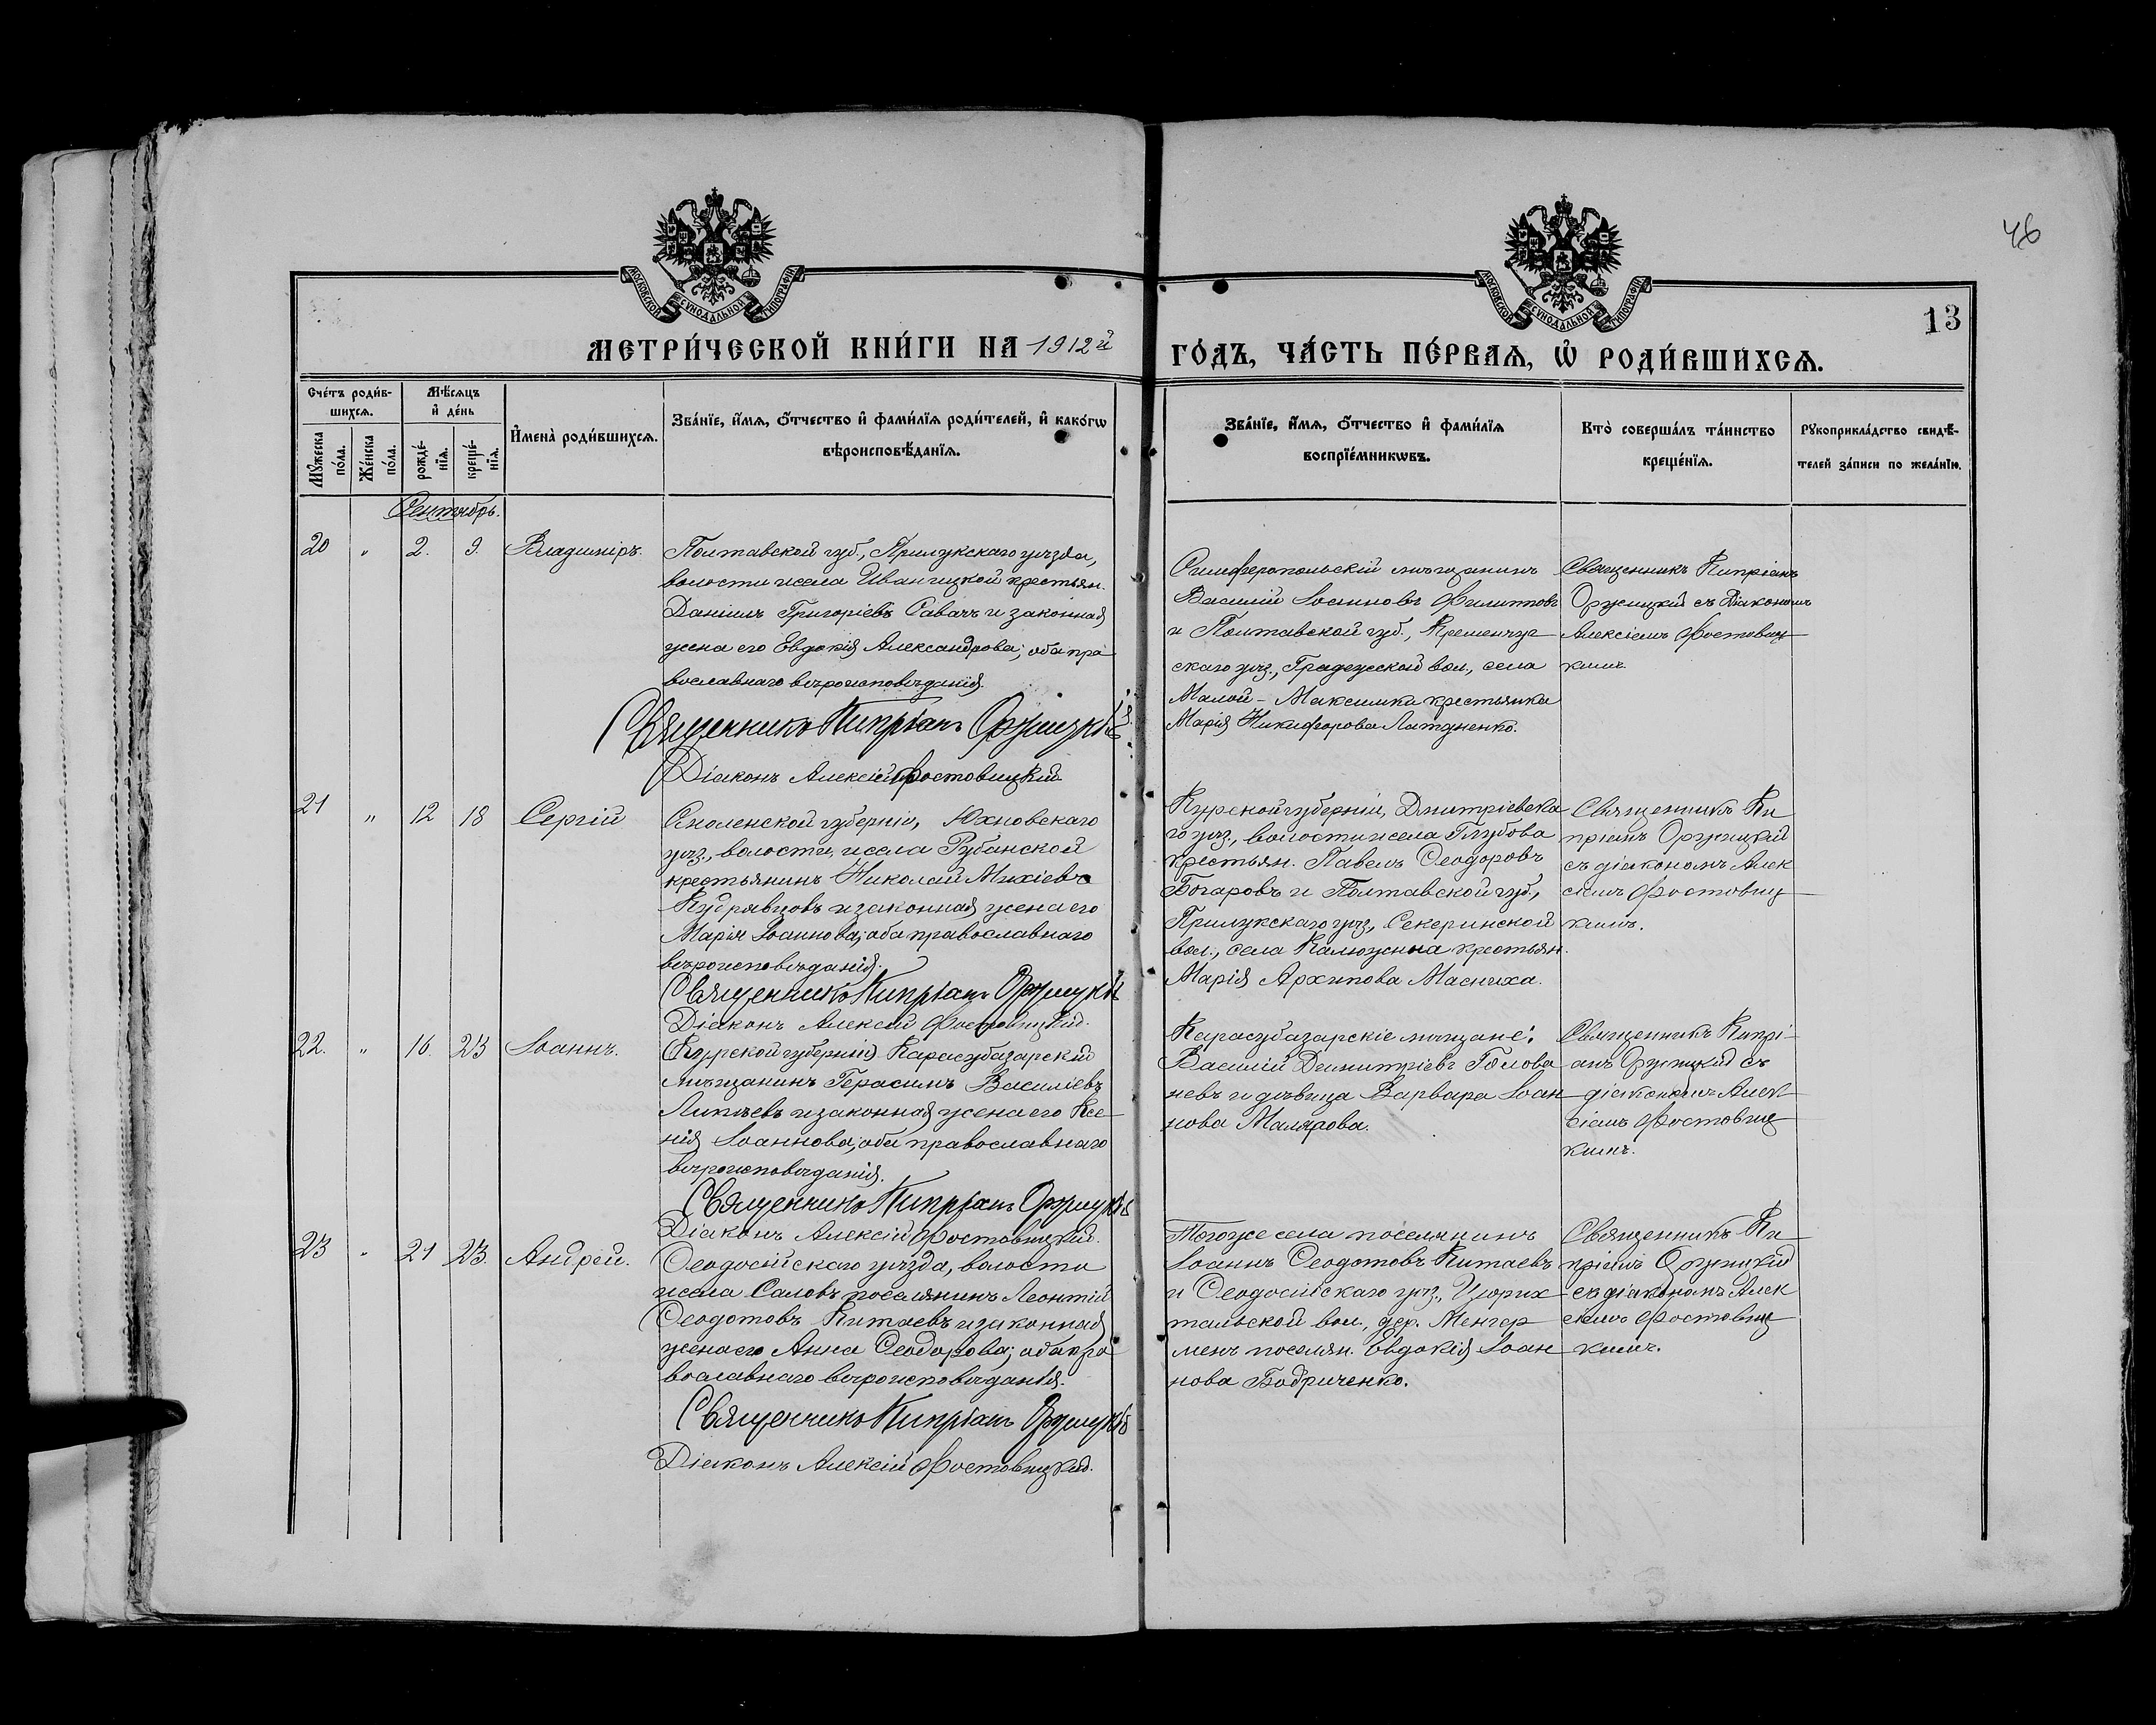 46
МОСКОВСКОЙ СУНОДАЛЬНОЙ ТИПОГРАФІИ
МОСКОВСКОЙ СУНОДАЛЬНОЙ ТИПОГРАФІИ
13
МЕТРИ́ЧЕСКОЙ КНИ́ГИ НА 1912й
ГО́ДЪ, ЧА́СТЬ ПЕ́РВАЯ, Ѡ҆ РОДИ́ВШИХСЯ.
Сче́тъ роди́в-
шихся.
Мѣсяцъ
и҆ де́нь
Мꙋжеска по́ла.
Же́нска по́ла.
рожде́-нїя.
креще́-нїя.
И҆мена̀ роди́вшихся.
Зва́нїе, и҆́мя, ѻ҆́тчество и҆ фами́лїя роди́телей, и҆ како́гѡ
вѣроисповѣ́данїя.
Зва́нїе, и҆́мя, ѻ҆́тчество и҆ фами́лїя
воспрїе́мникѡвъ.
Кто̀ соверша́лъ та́инство
креще́нїя.
Рꙋкоприкла́дство свидѣ́-
телей за́писи по жела́нїю.
Сентябрь.
20 " 2. 9. Владиміръ.
Полтавской губ., Прилукскаго уѣзда,
волости и села Иваницкой крестьян.
Даніилъ Григоріевъ Савачъ и законная
жена его Евдокія Александрова; оба пра
вославнаго вѣроисповѣданія.
Священникъ Кипріанъ Оржицкій
Діаконъ Алексій Фостовицкій
Симферопольскій мѣщанинъ
Василій Іоанновъ Филипповъ
и Полтавской губ., Кременчуг
скаго уѣз., Градежской вол., села
Малой - Максимки крестьянка
Марія Никифорова Латушенко.
Священникъ Кипріанъ
Оржицкій съ Діакономъ
Алексіемъ Фостовиц
кимъ
21 " 12 18 Сергій
Смоленской губерніи, Юхновскаго
уѣз., волости и села Рубинской
крестьянинъ Николай Михіевъ
Кудрявцовъ и законная жена его
Марія Іоаннова; оба православнаго
вѣроисповѣданія.
Священникъ Кипріанъ Оржицкій
Діаконъ Алексій Фостовицкій.
Курской губерніи, Дмитріевска
го уѣз., волости и села Глубова
крестьян. Павелъ Ѳеодоровъ
Богаровъ и Полтавской губ.,
Прилукскаго уѣз., Секеринской
вол., села Калюжина крестьян.
Марія Архипова Масниха.
Священникъ Ки
пріанъ Оржицкій
съ діакономъ Алек
сіемъ Фостовиц
кимъ.
22. " 16. 23 Іоаннъ.
(Курской губерніи) Карасубазарскій
мѣщанинъ Герасимъ Василіевъ
Липаевъ и законная жена его Ксе
нія Іоаннова; оба православнаго
вѣроисповѣданія.
Священникъ Кипріанъ Оржицкій
Діаконъ Алексій Фостовицкій.
Карасубазарскіе мѣщане:
Василій Димитріевъ Голова
невъ и дѣвица Варвара Іоан
нова Малярова.
Священникъ Кипрі-
анъ Оржицкій съ
діакономъ Алек
сіемъ Фостовиц
кимъ.
23 " 21 23. Андрей.
Ѳеодосійскаго уѣзда, волости
и села Саловъ поселянинъ Леонтій
Ѳеодотовъ Китаевъ и законная
жена его Анна Ѳеодорова; оба пра
вославнаго вѣроисповѣданія.
Священникъ Кипріанъ Оржицкій
Діаконъ Алексій Фостовицкій.
Того же села поселянинъ
Іоаннъ Ѳеодотовъ Китаевъ
и Ѳеодосійскаго уѣз., Цюрих
тальской вол., дер. Менгер
менъ поселян. Евдокія Іоан
нова Бодриченко.
Священникъ Ки
пріанъ Оржицкій
съ діакономъ Алек
сіемъ Фостовиц
кимъ.